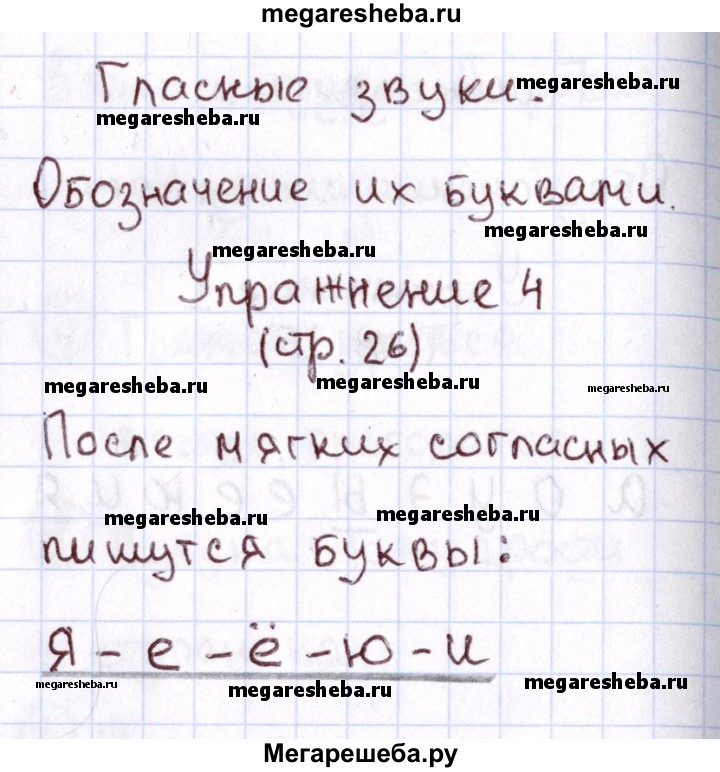 megaresheba.ru
Гласные звуки.
megaresheba.ru
megaresheba.ru
Обозначение их буквами.
megaresheba.ru
megaresheba.ru
Упражнение 4
(стр. 26)
megaresheba.ru
megaresheba.ru
megaresheba.ru
После мягких согласных
megaresheba.ru
megaresheba.ru
пишутся буквы:
я - е - ё - ю - и
megaresheba.ru
megaresheba.ru
megaresheba.ru
Мегарешеба.ру